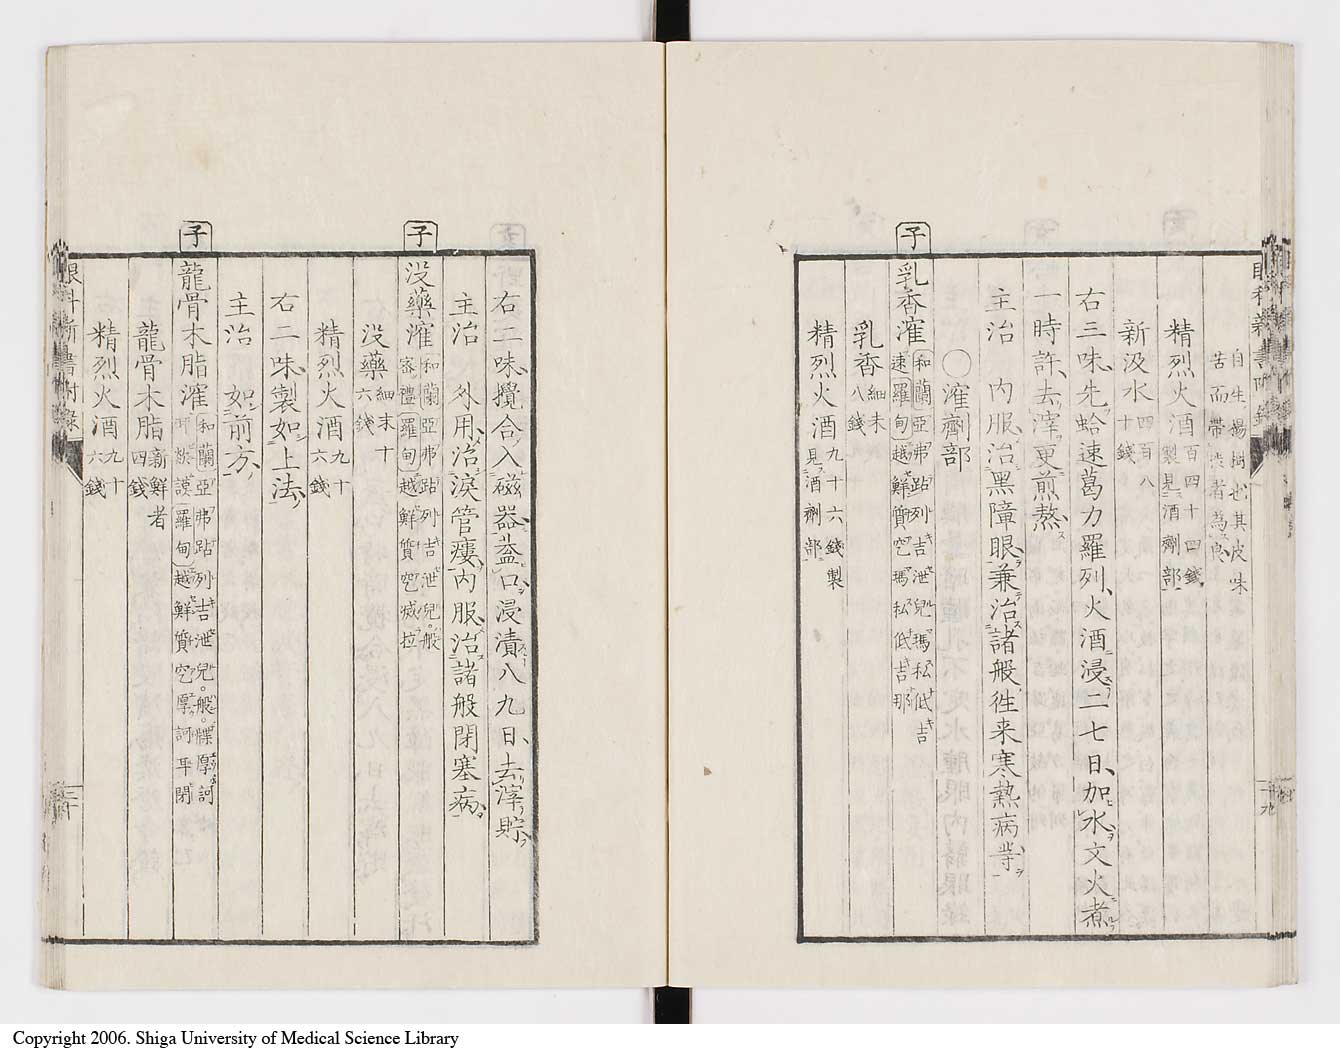 白生楊樹也其皮味
苦而帶渋者為良
精烈火酒百四十四錢製見酒劑部
新汲水四百八十錢
右三味先蛤速葛力羅列火酒浸二七日加水文火煮
一時許去滓更煎熬
主治 内服治黑障眼兼治諸般徃来寒熱病等
〇漼劑部
子
乳香漼和蘭亞弗跕列吉泄兒瑪松低吉速羅甸越鮮質空瑪私低吉那
乳香細末八錢
精烈火酒九十六錢製見酒劑部
右二味攪合入磁器蓋口浸漬八九日去滓貯
主治 外用治淚管瘻内服治諸般閉塞病
子
没藥漼和蘭亞弗跕列吉泄兒般密禮羅甸越鮮質空
没藥細末十六錢
精烈火酒九十六錢
右二味製如上法
主治 如前方
子
龍骨木脂漼和蘭亞弗跕列吉泄兒般羅甸越鮮質空
龍骨木脂新鮮者四錢
精烈火酒九十六錢
眼科新書附錄
三十
Copyright 2006. Shiga University of Medical Science Library